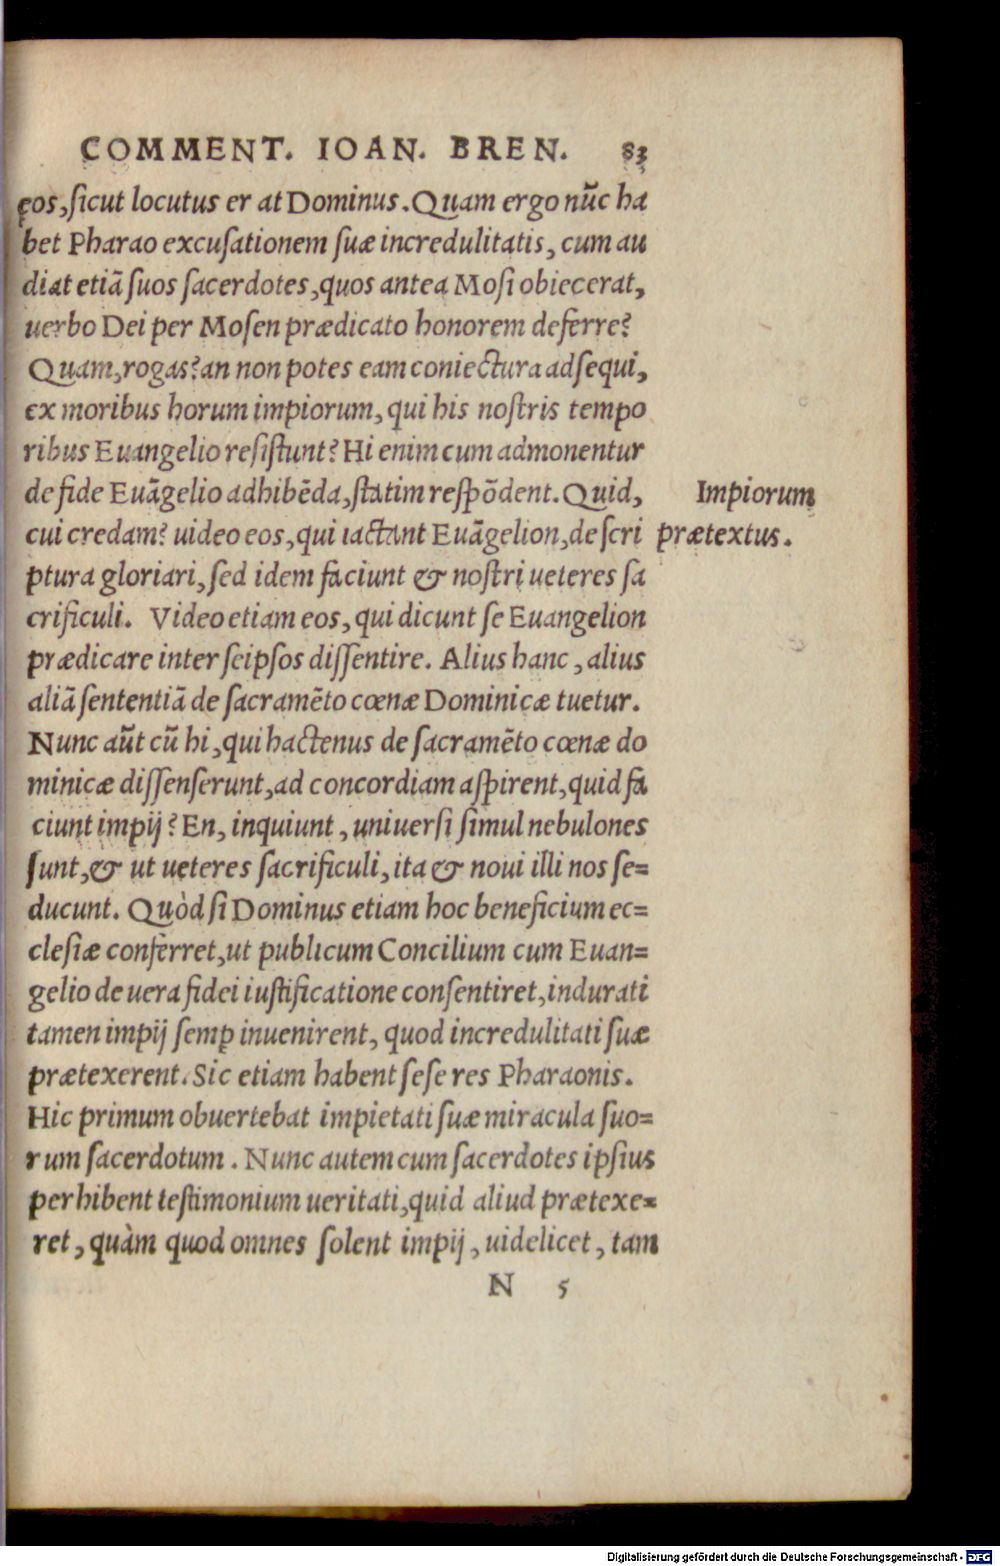 COMMENT. IOAN. BREN. 83
eos, sicut locutus er at Dominus. Quam ergo nũc ha
bet Pharao excusationem suæ incredulitatis, cum au
diat etiã suos sacerdotes, quos antea Mosi obiecerat,
uerbo Dei per Mosen prædicato honorem deferre?
Quam, rogas? an non potes eam coniectura adsequi,
ex moribus horum impiorum, qui his nostris tempo
ribus Euangelio resistunt? Hi enim cum admonentur
de fide Euãgelio adhibẽda, statim respõdent. Quid,
cui credam? uideo eos, qui iactant Euãgelion, de scri
ptura gloriari, sed idem faciunt & nostri ueteres sa
crificuli. Video etiam eos, qui dicunt se Euangelion
prædicare inter seipsos dissentire. Alius hanc, alius
aliã sententiã de sacramẽto cœnæ Dominicæ tuetur.
Nunc aũt cũ hi, qui hactenus de sacramẽto cœnæ do
minicæ dissenserunt, ad concordiam aspirent, quid fa
ciunt impij? En, inquiunt, uniuersi simul nebulones
sunt, & ut ueteres sacrificuli, ita & noui illi nos se=
ducunt. Quòd si Dominus etiam hoc beneficium ec=
clesiæ conferret, ut publicum Concilium cum Euan=
gelio de uera fidei iustificatione consentiret, indurati
tamen impij semꝑ inuenirent, quod incredulitati suæ
prætexerent. Sic etiam habent sese res Pharaonis.
Hic primum obuertebat impietati suæ miracula suo=
rum sacerdotum. Nunc autem cum sacerdotes ipsius
perhibent testimonium ueritati, quid aliud prætexe=
ret, quàm quod omnes solent impij, uidelicet, tam
N 5
Impiorum
prætextus.
Digitalisierung gefördert durch die Deutsche Forschungsgemeinschaft - DFG